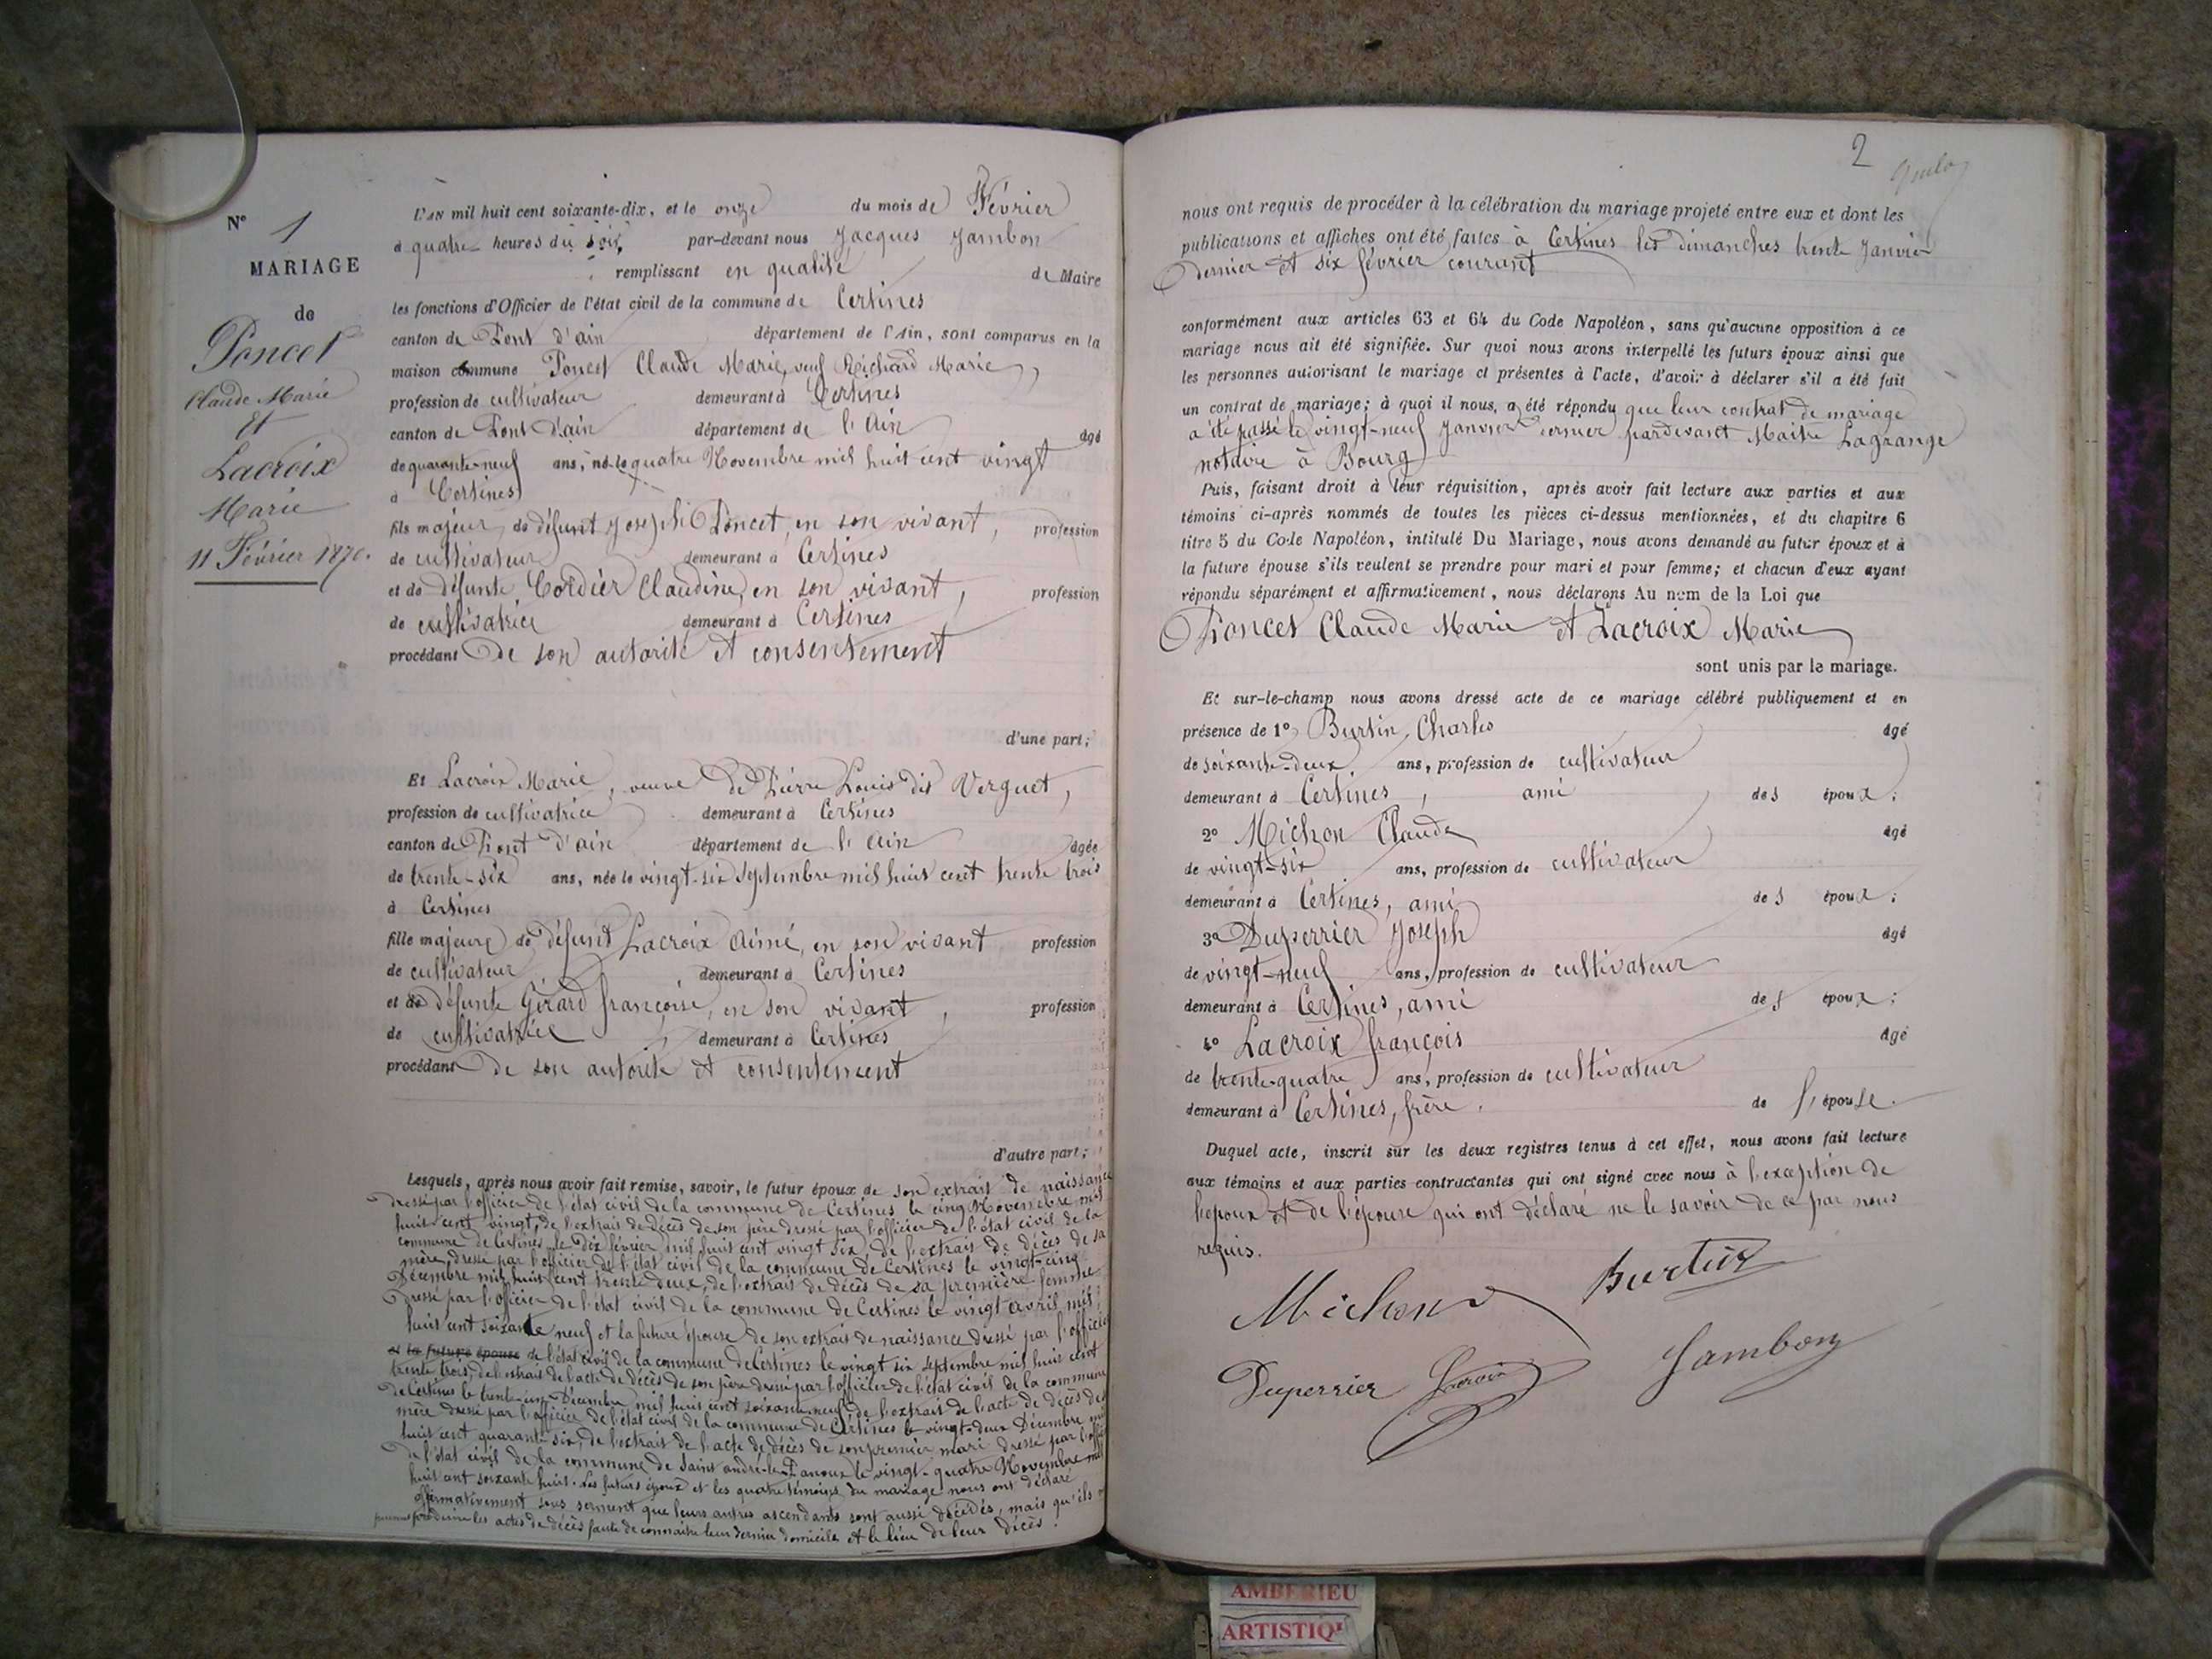 N° 1
MARIAGE
de
Poncet
Claude Marie
et
Lacroix
Marie
11 Février 1870.
L'AN mil huit cent soixante-dix, et le onze du mois de Février
à quatre heures du soir, par-devant nous Jacques Jambon
remplissant en qualité de Maire
les fonctions d'Officier de l'état civil de la commune de Certines
canton de Pont d'ain département de l'Ain, sont comparus en la
maison commune Poncet Claude Marie, veuf Richard Marie,
profession de cultivateur demeurant à Certines
canton de Pont d'ain département de l'Ain âgé
de quarante-neuf ans, né le quatre Novembre mil huit cent vingt
à Certines
fils majeur de défunt Joseph Poncet, en son vivant, profession
de cultivateur demeurant à Certines
et de défunte Cordier Claudine, en son vivant, profession
de cultivatrice demeurant à Certines
procédant de son autorité et consentement
d'une part;
Et Lacroix Marie, veuve de Pierre Louis dit Verguet,
profession de cultivatrice demeurant à Certines
canton de Pont d'ain département de l'Ain âgée
de trente-six ans, née le vingt-six septembre mil huit cent trente trois
à Certines
fille majeure de défunt Lacroix Aimé, en son vivant profession
de cultivateur demeurant à Certines
et de défunte Girard françoise, en son vivant, profession
de cultivatrice demeurant à Certines
procédant de son autorité et consentement
d'autre part;
Lesquels, après nous avoir fait remise, savoir, le futur époux de son extrait de naissance
dressé par l'officier de l'état civil de la commune de Certines le cinq Novembre mil
huit cent vingt, de l'extrait de décès de son père dressé par l'officier de l'état civil de la
commune de Certines le dix février mil huit cent vingt six, de l'extrait de décès de sa
mère, dressé par l'officier de l'état civil de la commune de Certines le vingt-cinq
Décembre mil huit cent trente deux, de l'extrait de décès de sa première femme
dressé par l'officier de l'état civil de la commune de Certines le vingt avril mil
huit cent soixante neuf et la future épouse de son extrait de naissance dressé par l'officier
et la future épouse de l'état civil de la commune de Certines le vingt six septembre mil huit cent
trente trois, de l'extrait de l'acte de décès de son père dressé par l'officier de l'état civil de la commune
de Certines le trente-un Décembre mil huit cent soixante neuf de l'extrait de l'acte de décès de
mère dressé par l'officier de l'état civil de la commune de Certines le vingt-deux Décembre mil
huit cent quarante-six, de l'extrait de l'acte de décès de son premier mari dressé par l'officier
de l'état civil de la commune de Saint andré-le-Panoux le vingt-quatre Novembre mil
huit cent soixante huit. Les futurs époux et les quatre témoins du mariage nous ont déclaré
affirmativement sous serment que leurs autres ascendants sont aussi décédés, mais qu'ils
produire les actes de décès faute de connaître leur dernier domicile et le lieu de leur décès.
2
nous ont requis de procéder à la célébration du mariage projeté entre eux et dont les
publications et affiches ont été faites à Certines les dimanches trente Janvier
dernier et six février courant
conformément aux articles 63 et 64 du Code Napoléon, sans qu'aucune opposition à ce
mariage nous ait été signifiée. Sur quoi nous avons interpellé les futurs époux ainsi que
les personnes autorisant le mariage et présentes à l'acte, d'avoir à déclarer s'il a été fait
un contrat de mariage; à quoi il nous a été répondu que leur contrat de mariage
a été passé le vingt-neuf Janvier dernier pardevant Maître Lagrange
notaire à Bourg
Puis, faisant droit à leur réquisition, après avoir fait lecture aux parties et aux
témoins ci-après nommés de toutes les pièces ci-dessus mentionnées, et du chapitre 6
titre 5 du Code Napoléon, intitulé Du Mariage, nous avons demandé au futur époux et à
la future épouse s'ils veulent se prendre pour mari et pour femme; et chacun d'eux ayant
répondu séparément et affirmativement, nous déclarons Au nom de la Loi que
Poncet Claude Marie et Lacroix Marie
sont unis par le mariage.
Et sur-le-champ nous avons dressé acte de ce mariage célébré publiquement et en
présence de 1° Burtin, Charles âgé
de soixante-deux ans, profession de cultivateur
demeurant à Certines, ami des époux;
2° Michon Claude âgé
de vingt-six ans, profession de cultivateur
demeurant à Certines, ami des époux;
3° Duperrier Joseph âgé
de vingt-neuf ans, profession de cultivateur
demeurant à Certines, ami des époux;
4° Lacroix françois âgé
de trente-quatre ans, profession de cultivateur
demeurant à Certines, frère de l'épouse.
Duquel acte, inscrit sur les deux registres tenus à cet effet, nous avons fait lecture
aux témoins et aux parties contractantes qui ont signé avec nous à l'exception de
l'époux et de l'épouse qui ont déclaré ne le savoir de ce par nous
requis.
Michon Burtin
Duperrier Lacroix Jambon
AMBERIEU
ARTISTIQ